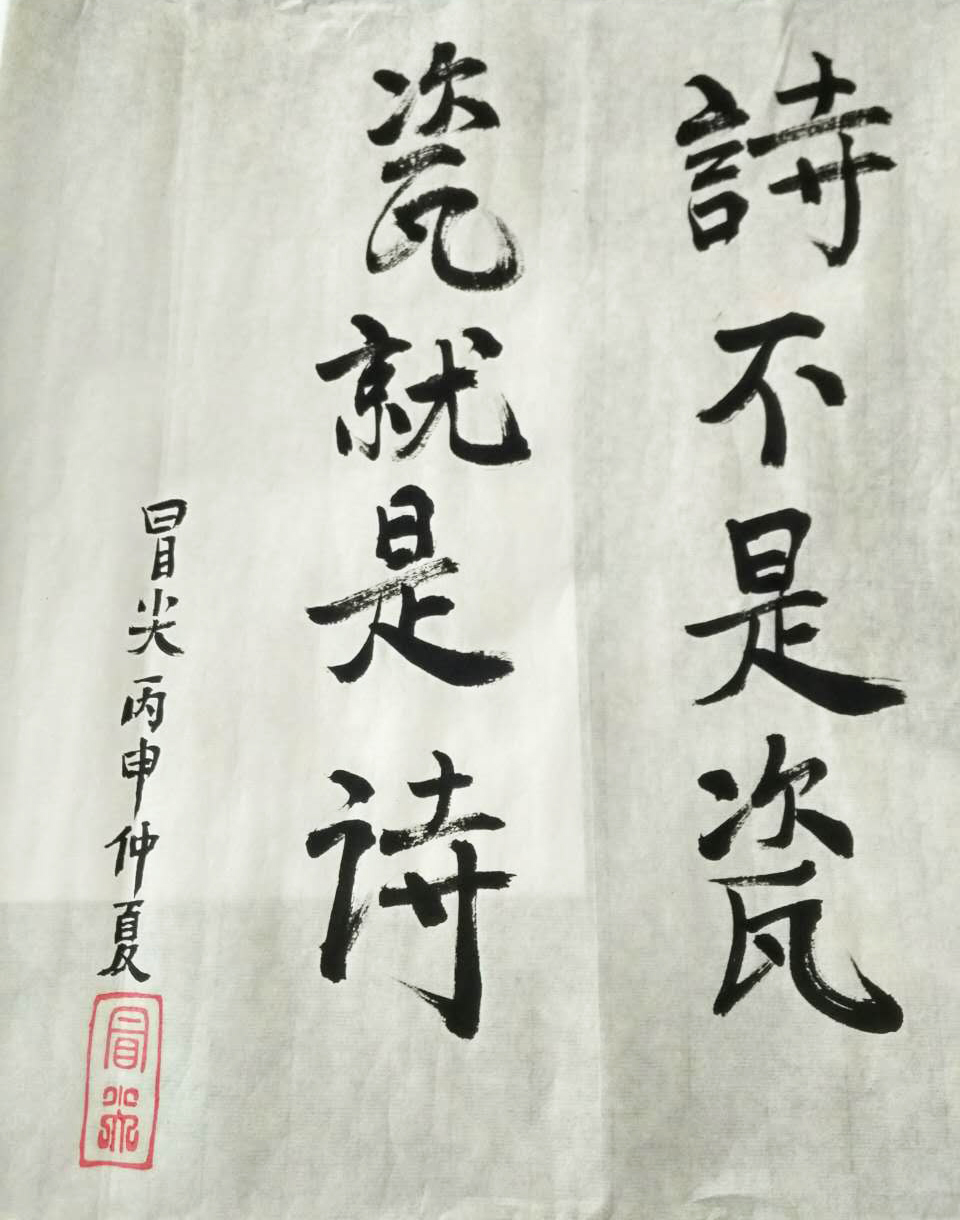 詩不是瓷
瓷就是诗
冒尖丙申仲夏
冒尖